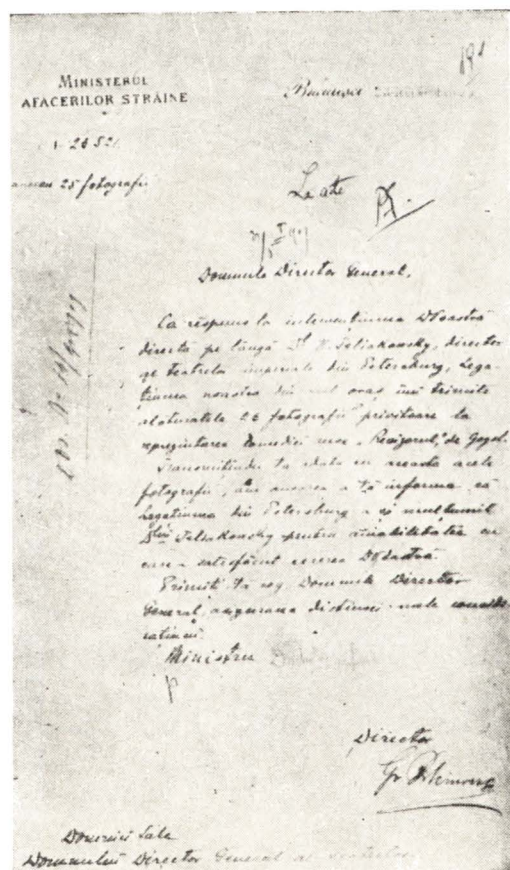 191
MINISTERUL
AFACERILOR STRĂINE
București
25 fotografii
La acte
Domnule Director General,
Ca răspuns la intervențiunea Dvoastră
directă pe lângă Dl Teliakowsky, director
teatrelor imperiale din Petersburg, Lega-
țiunea noastră din oraș îmi trimite
alăturatele 25 fotografii privitoare la
reprezintarea comediei „Revizorul" de Gogol.
Transmițindu-vă odată cu aceasta acele
fotografii, am onoarea a vă informa că
Legațiunea din Petersburg a și mulțumit
Dlui Teliakowsky pentru amabilitatea cu
care a satisfăcut cererea Dvoastră.
Primiți, vă rog, Domnule Director
General, asigurarea distinsei mele conside-
rațiuni.
Ministru
Director
Domniei Sale
Domnului Director General al Teatrelor